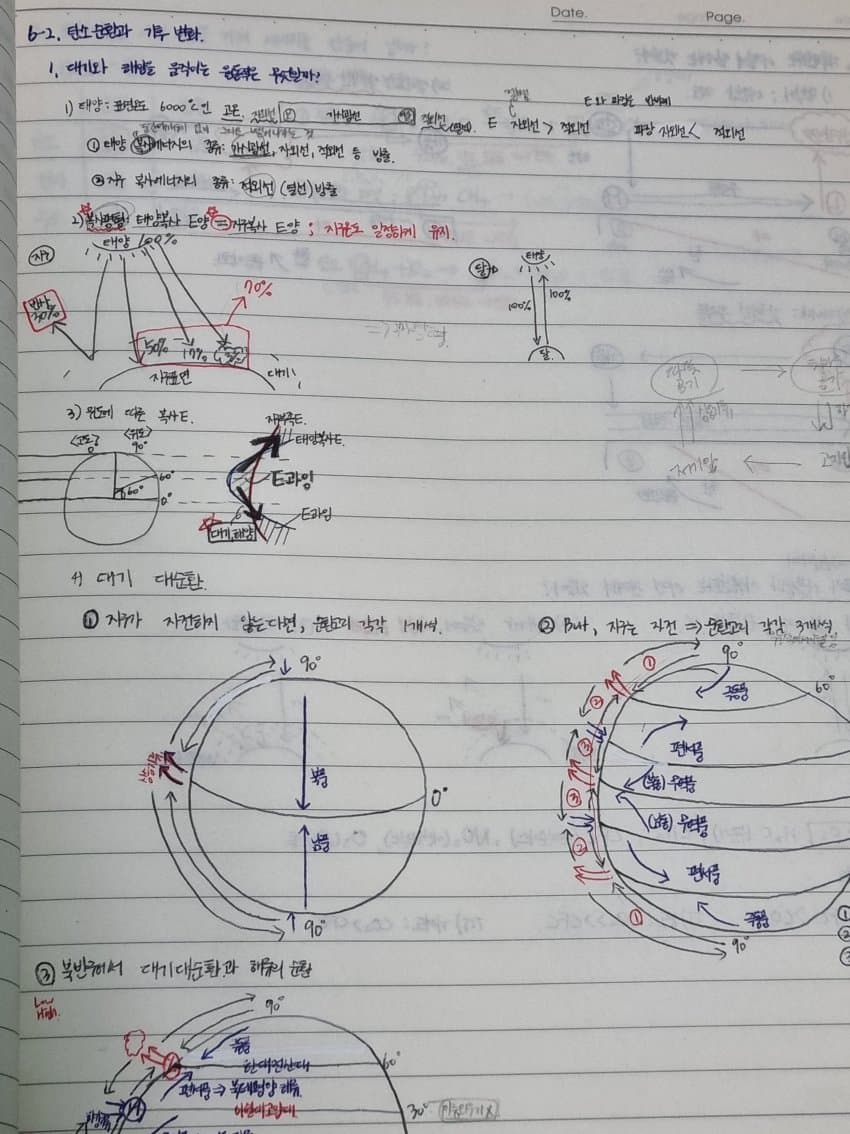 Date.
Page.
6-2. 탄소순환과 기후 변화.
1. 대기와 해양을 움직이는 원동력은 무엇일까?
1) 태양: 표면온도 6000℃인 고온. 자외선 가시광선 적외선 E 자외선 > 적외선 파장 자외선 < 적외선
E와 파장은 반비례
① 태양 복사에너지의 종류: 가시광선, 자외선, 적외선 등 방출.
② 지구 복사에너지의 종류: 적외선 (열선) 방출
2) 복사평형: 태양복사 E양 = 지구복사 E양 ; 지구온도 일정하게 유지.
지구
태양 100%
반사 30%
70%
50%
지구표면
대기
달
태양
100%
100%
달.
3) 위도에 따른 복사E.
<위도>
90°
60°
60°
0°
태양복사E.
E과잉
E과잉
대기, 해양
4) 대기 대순환.
① 지구가 자전하지 않는다면, 순환고리 각각 1개씩.
90°
북풍
0°
남풍
90°
② But, 지구는 자전 ⇒ 순환고리 각각 3개씩.
90°
60°
극동풍
편서풍
(북동) 무역풍
(남동) 무역풍
편서풍
극동풍
90°
①
②
③
③
②
①
①
②
③
③ 북반구에서 대기대순환과 해류의 순환
Low
High.
90°
극동풍
한대전선대
60°
편서풍 ⇒ 북태평양 해류.
아한대저압대.
30°
H